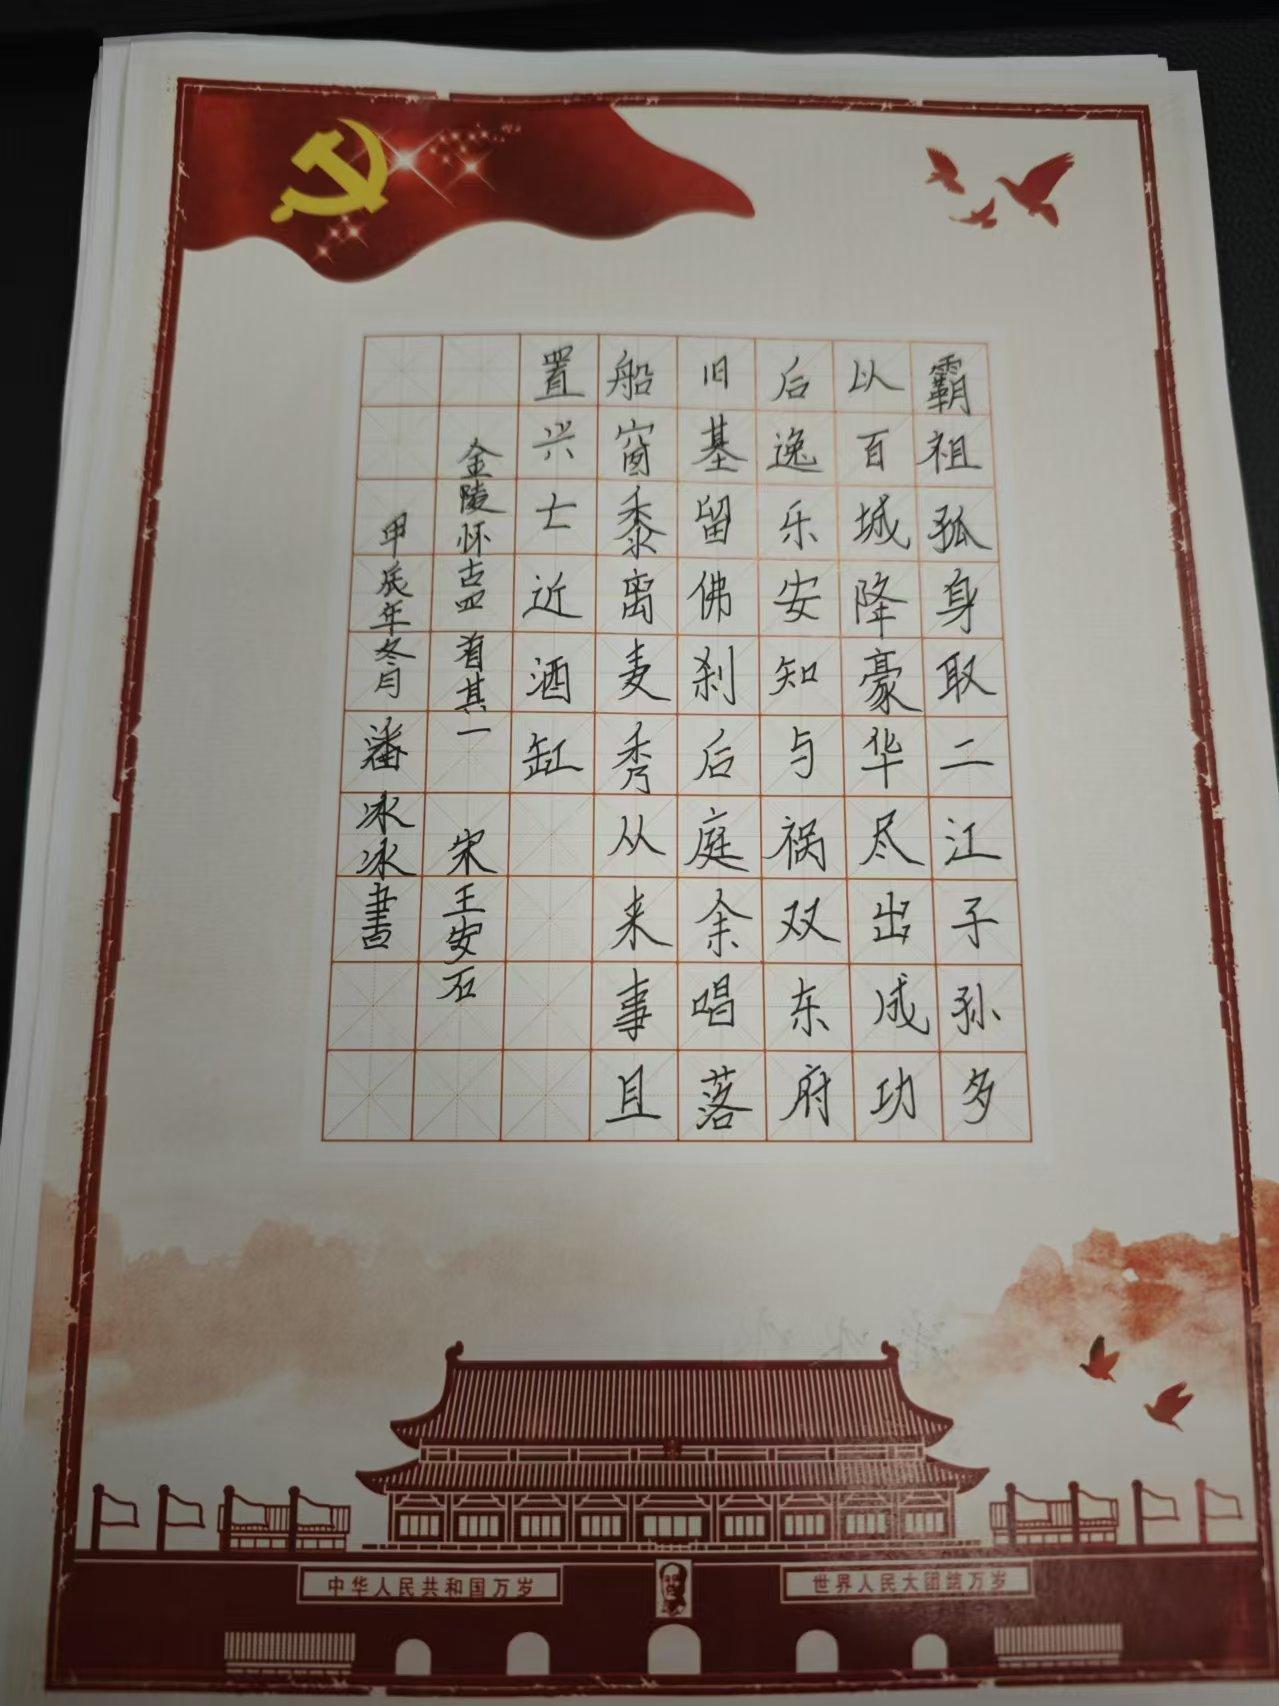 霸祖孤身取二江子孙多
以百城降豪华尽出成功
后逸乐安知与祸双东府
旧基留佛刹后庭余唱落
船窗黍离麦秀从来事且
置兴亡近酒缸
金陵怀古四首其一 宋王安石
甲辰年冬月 潘冰冰书
中华人民共和国万岁
世界人民大团结万岁